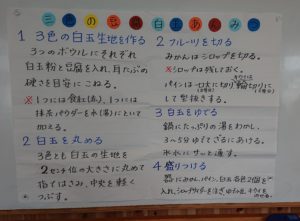 三色の豆腐白玉あんみつ
1 3色の白玉生地を作る
3つのボウルにそれぞれ
白玉粉と豆腐を入れ、耳たぶの
硬さを目安にこねる。
※1つには食紅(赤)、1つには
抹茶パウダーを水(湯)にといて
加える。
2 白玉を丸める
3色とも白玉の生地を
2センチ位の大きさに丸めて
指ではさみ、中央を軽く
つぶす。
2 フルーツを切る
みかんはシロップを切る。
※シロップは残しておく。
パインは一口大に切り
して型抜きする。
3 白玉をゆでる
鍋にたっぷりの湯をわかし、
3〜5分ゆでてざるにあげる。
氷水にさっと通す。
4 盛りつける
器にみかん、パイン、白玉各色2個を
入れ、シロップ
のせる。